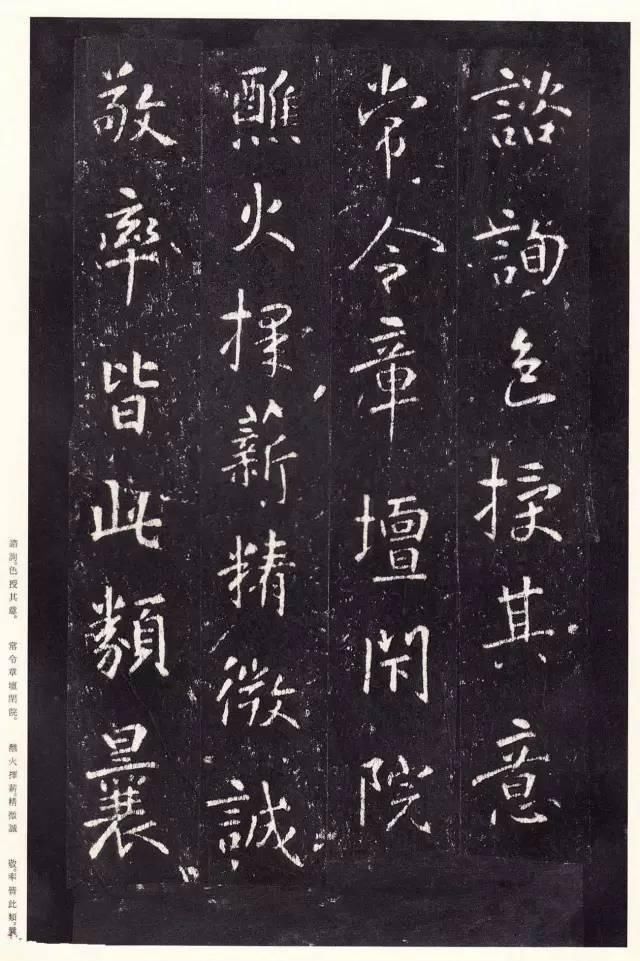 諮詢色授其意
常令章壇閇院
醮火擇薪精微誠
敬率皆此類曩
諮詢。色授其意。 常令章壇閇院。 醮火擇薪。精微誠 敬。率皆此類。曩